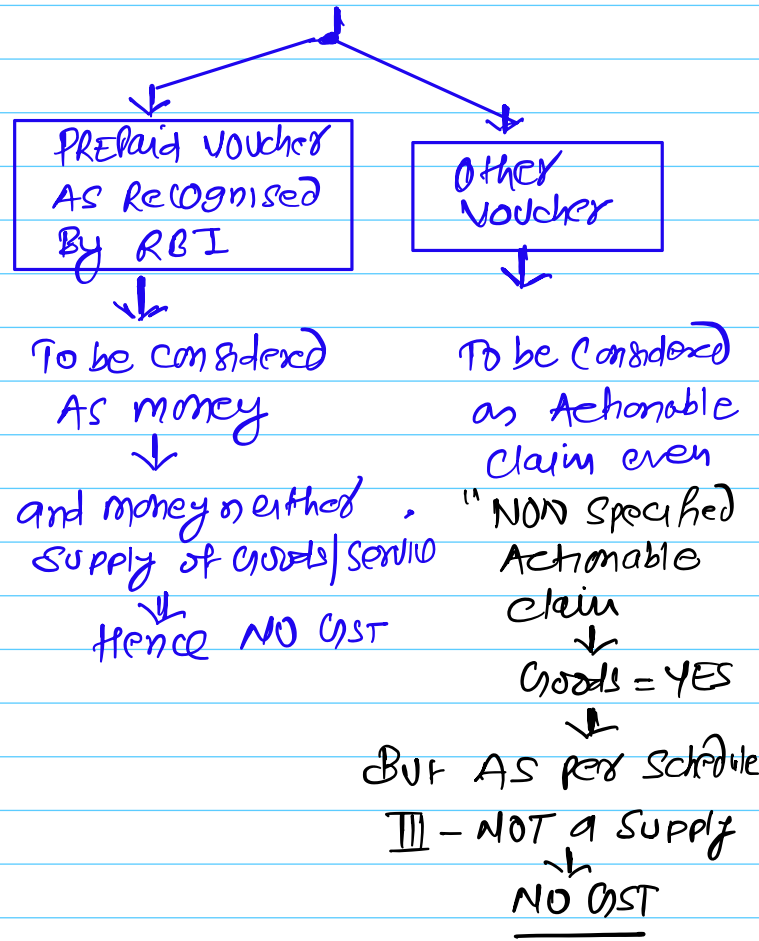 PREPaid voucher
As Recognised
By RBI
To be considered
As money
and money neither
supply of Goods/Service
Hence NO GST
Other
voucher
To be Considered
as Actionable
claim even
"NON Specified
Actionable
claim
Goods = YES
But As per schedule
III - NOT a supply
NO GST